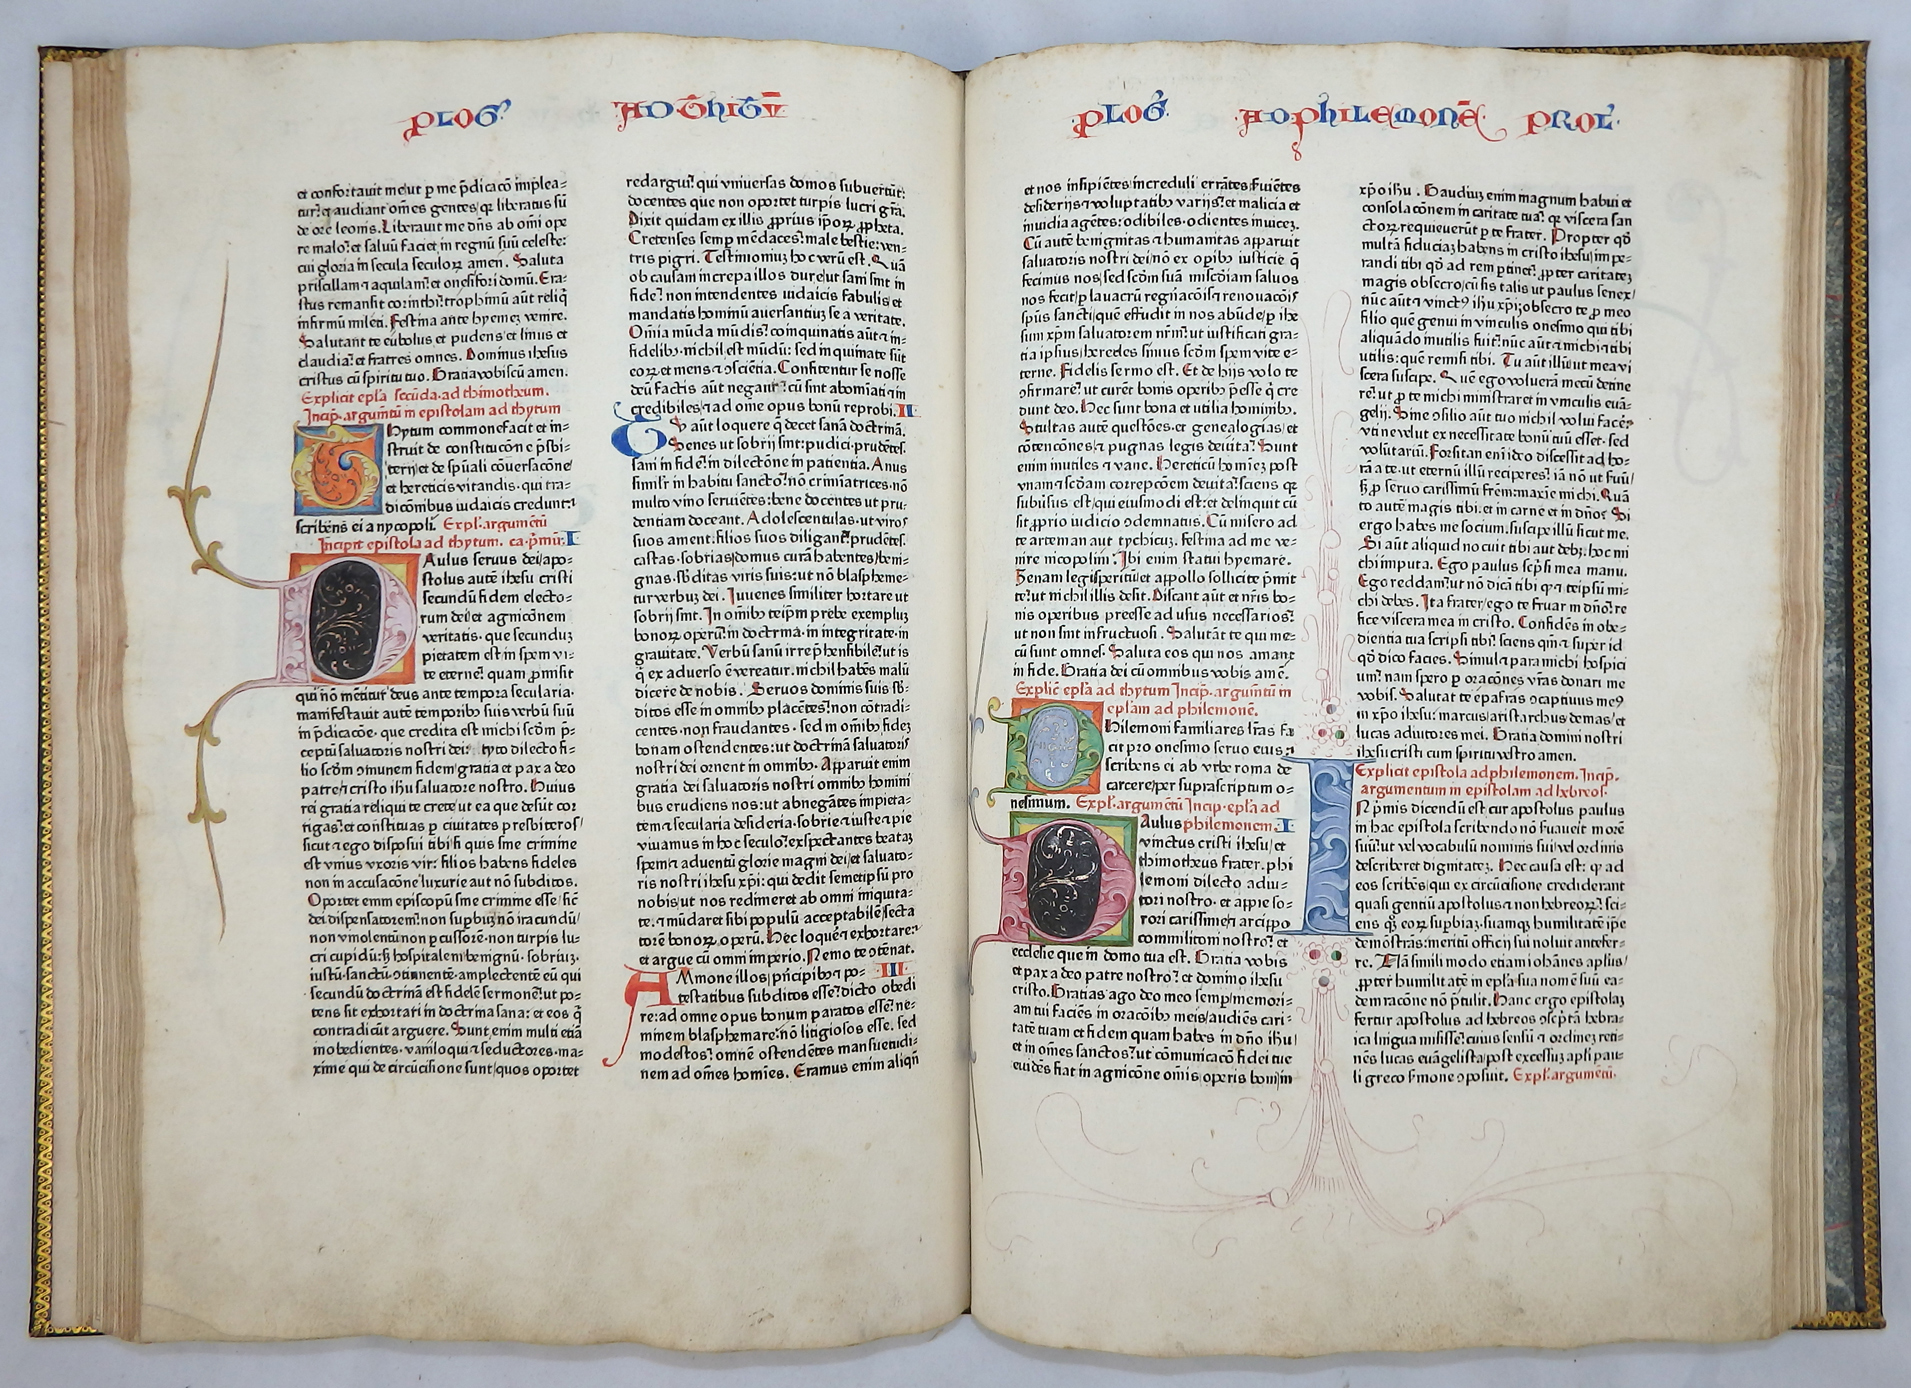 PLOG9
AD THITŪ
et confortauit me/ut p me p̄dicacō implea=
tur: et audiant om̄es gentes/ qꝛ liberatus sū
de ore leonis. Liberauit me dn̄s ab om̄i ope
re malo: et saluū faciet in regnū suū celeste:
cui gloria in secula seculoꝝ amen. Saluta
priscillam et aquilam: et onesifori domū. Era=
stus remansit corinthi: trophimū aūt reliq̄
infirmū mileti. Festina ante hyemez venire.
Salutant te eubolus et pudens/et linus et
claudia: et fratres omnes. Dominus ihesus
cristus cū spiritu tuo. Gratia vobiscū amen.
Explicit epl̄a secūda ad thimotheum.
Incip. argum̄tū in epistolam ad thytum
Thytum commonefacit et in=
struit de constitucōne p̄sbi=
terij: et de spūali cōuersacōne
et hereticis vitandis. qui tra=
dicōnibus iudaicis credunt:
scribens ei a nycopoli. Expl̄. argumētū
Incipit epistola ad thytum. ca. p̄mū. I
PAulus seruus dei/apo=
stolus autē ihesu cristi
secundū fidem electo=
rum dei: et agnicōnem
veritatis. que secunduz
pietatem est in spem vi=
te eterne: quam p̄misit
qui nō mētitur deus ante tempora secularia.
manifestauit autē temporibꝯ suis verbū suū
in p̄dicacōe. que credita est michi scd̄m p̄=
ceptū saluatoris nostri dei: tyto dilecto fi=
lio scd̄m ꝯmunem fidem/gratia et pax a deo
patre: et cristo ihū saluatore nostro. Huius
rei gratia reliqui te crete: ut ea que desūt cor
rigas: et constituas p ciuitates presbiteros/
sicut et ego disposui tibi. si quis sine crimine
est vnius vxoris vir: filios habens fideles
non in accusacōne luxurie aut nō subditos.
Oportet enim episcopū sine crimine esse/ sic̄
dei dispensatorem: non supbū: nō iracundū/
non vinolentū: non p̄cussorē. non turpis lu=
cri cupidū: sꝫ hospitalem: benignū. sobriuz.
iustū. sanctū. ꝯtinentē. amplectentē eū qui
secundū doctrinā est fidelē sermonē: ut po=
tens sit exhortari in doctrina sana: et eos q̄
contradicūt arguere. Sunt enim multi etiā
inobedientes. vaniloqui et seductores. ma=
xime qui de circūcisione sunt/quos oportet
redargui: qui vniuersas domos subuertūt:
docentes que non oportet turpis lucri gr̄a.
Dixit quidam ex illis ꝓprius ip̄oꝝ ꝓpheta.
Cretenses semp mēdaces: male bestie: ven=
tris pigri. Testimoniuz hoc verū est. Quā
ob causam increpa illos dure/ut sani sint in
fide: non intendentes iudaicis fabulis et
mandatis hominū auersantiuz se a veritate.
Om̄ia mūda mūdis: coinquinatis aūt et in=
fidelibꝯ. nichil est mūdū: sed inquinate sūt
eoꝝ et mens et ꝯscīetia. Confitentur se nosse
deū factis aūt negant: cū sint abominati et in
credibiles/et ad om̄e opus bonū reprobi. II
TU aūt loquere q̄ decet sanā doctrinā.
Senes ut sobrij sint: pudici. prudētes.
sani in fide: in dilectōne in patientia. Anus
similr̄ in habitu sancto: nō criminatrices. nō
multo vino seruiētes: bene docentes ut pru=
dentiam doceant. Adolescentulas. ut viros
suos ament: filios suos diligant. prudētes.
castas. sobrias/domus curā habentes/beni=
gnas. sb̄ditas viris suis: ut nō blaspheme=
tur verbuz dei. Iuuenes similiter hortare ut
sobrij sint. In om̄ibꝯ teip̄m prebe exempluz
bonoꝝ operū: in doctrina. in integritate. in
grauitate. Verbū sanū irrep̄hensibile: ut is
q̄ ex aduerso ē vereatur. nichil habēs malū
dicere de nobis. Seruos dominis suis sb̄=
ditos esse in omnibꝯ placētes: non cōtradi=
centes. non fraudantes. sed in om̄ibꝯ fidez
bonam ostendentes: ut doctrinā saluatoris
nostri dei ornent in omnibꝯ. Apparuit enim
gratia dei saluatoris nostri omnibꝯ homini
bus erudiens nos: ut abnegātes impieta=
tem et secularia desideria. sobrie et iuste et pie
viuamus in hoc seculo: exspectantes beataz
spem et aduentū glorie magni dei/et saluato=
ris nostri ihesu xp̄i: qui dedit semetip̄sū pro
nobis/ut nos redimeret ab omni iniquita=
te. et mūdaret sibi populū acceptabilē/secta
torē bonoꝝ operū. Hec loquēr et exhortare:
et argue cū omni imperio. Nemo te ꝯtēnat.
AMmone illos/p̄ncipibꝯ et po= III
testatibus subditos esse: dicto obedi
re: ad omne opus bonum paratos esse: ne=
minem blasphemare: nō litigiosos esse. sed
modestos: omnē ostendētes mansuetudi=
nem ad om̄es homīes. Eramus enim aliqn̄
PLOG9
AD PHILEMONĒ
PROL9
et nos insipiētes: increduli errātes/seruiētes
desiderijs et voluptatibꝯ varijs: et malicia et
inuidia agētes: odibiles. odientes inuicez.
Cū autē benignitas et humanitas apparuit
saluatoris nostri dei/nō ex opibꝯ iusticie q̄
fecimus nos/sed scd̄m suā mīscdiam saluos
nos fecit/p lauacrū regn̄acōis et renouacōis
spūs sancti/quē effudit in nos abūde/p ihe
sum xp̄m saluatorem nr̄m: ut iustificati gra=
tia ipsius/heredes simus scd̄m spem vite e=
terne. Fidelis sermo est. Et de hijs volo te
ꝯfirmare: ut curēt bonis operibꝯ p̄esse q̄ cre
dunt deo. Hec sunt bona et utilia hominibꝯ.
Stultas autē questōes. et genealogias/et
cōtencōnes/et pugnas legis deuita: Sunt
enim inutiles et vane. Hereticū homīez post
vnam et scd̄am correpcōem deuita: sciens qꝛ
subūsus est/qui eiusmodi est: et delinquit cū
sit ꝓprio iudicio ꝯdemnatus. Cū misero ad
te arteman aut tychicuz. festina ad me ve=
nire nicopolim. Ibi enim statui hyemare.
Zenam legisperitū et appollo sollicite p̄mit
te: ut nichil illis desit. Discant aūt et nr̄is bo=
nis operibus preesse ad usus necessarios:
ut non sint infructuosi. Salutāt te qui me=
cū sunt omnes. Saluta eos qui nos amant
in fide. Gratia dei cū omnibus vobis amē.
Explic̄ epl̄a ad thytum Incip. argum̄tū in
epl̄am ad philemonē.
Philemoni familiares lr̄as fa
cit pro onesimo seruo eius:
scribens ei ab vrbe roma de
carcere/per suprascriptum o=
nesimum. Expl̄. argumētū Incip. epl̄a ad
PAulus philemonem. I
vinctus cristi ihesu/et
thimotheus frater. phi
lemoni dilecto adiu=
tori nostro. et appie so=
rori carissime/et arcippo
commilitoni nostro: et
ecclesie que in domo tua est. Gratia vobis
et pax a deo patre nostro: et domino ihesu
cristo. Gratias ago deo meo semp/memori=
am tui faciēs in oracōibꝯ meis/audiēs cari=
tatē tuam et fidem quam habes in dn̄o ihū/
et in om̄es sanctos: ut cōmunicacō fidei tue
euidēs fiat in agnicōne om̄is operis boni/in
xp̄o ihū. Gaudiuz enim magnum habui et
consolacōnem in caritate tua: qꝛ viscera san
ctoꝝ requieuerūt p te frater. Propter qd̄
multā fiduciaz habens in cristo ihesu/impe=
randi tibi qd̄ ad rem ptinet: ꝓpter caritatez
magis obsecro/cū sis talis ut paulus senex/
nūc aūt et vinctꝯ ihū xp̄i: obsecro te/p meo
filio quē genui in vinculis onesimo qui tibi
aliquādo inutilis fuit: nūc aūt et michi et tibi
utilis: quē remisi tibi. Tu aūt illū/ut mea vi
scera suscipe. Quē ego voluerā mecū detine
re: ut p te michi ministraret in vinculis euā=
gelij. Sine ꝯsilio aūt tuo nichil volui facē:
vti ne vlut ex necessitate bonū tuū esset. sed
volutariū. Forsitan eni ideo discessit ad ho=
rā a te. ut eternū illū reciperes: iā nō ut suū/
sꝫ p seruo carissimū frēm: maxīe michi. Quā
to autē magis tibi. et in carne et in dn̄o: Si
ergo habes me socium. suscipe illū sicut me.
Si aūt aliquid nocuit tibi aut debꝫ: hoc mi
chi imputa. Ego paulus scp̄si mea manu.
Ego reddam: ut nō dicā tibi qꝛ et teip̄sū mi=
chi debes. Ita frater/ego te fruar in dn̄o: re
fice viscera mea in cristo. Confidēs in obe=
dientia tua scripsi tibi: sciens qm̄ et super id
qd̄ dico facies. Simul et para michi hospici
um: nam spero p oracōnes vr̄as donari me
vobis. Salutat te epafras ꝯcaptiuus meꝯ
in xp̄o ihesu: marcus/aristarchus demas/et
lucas adiutores mei. Gratia domini nostri
ihesu cristi cum spiritu vestro amen.
Explicit epistola ad philemonem. Incip.
argumentum in epistolam ad hebreos.
IN p̄mis dicendū est cur apostolus paulus
in hac epistola scribendo nō suauerit morē
suū: ut vel vocabulū nominis sui/vel ordinis
describeret dignitatez. Hec causa est: qꝛ ad
eos scribēs/qui ex circūcisione crediderant
quasi gentiū apostolus et non hebreoꝝ: sci=
ens qꝫ eoꝝ supbiaz. suamqꝫ humilitatē ip̄e
demōstrās: meritū officij sui noluit antefer=
re. Nā simili modo etiam iohānes apl̄us/
ꝓpter humilitatē in epl̄a/sua nomē suū ea=
dem racōne nō p̄tulit. Hanc ergo epistolaz
fertur apostolus ad hebreos ꝯscp̄tā hebra=
ica lingua misisse: cuius sensū et ordinez reti=
nēs lucas euāgelista/post excessuz apl̄i pau=
li greco s̄mone ꝯposuit. Expl̄. argumētū.